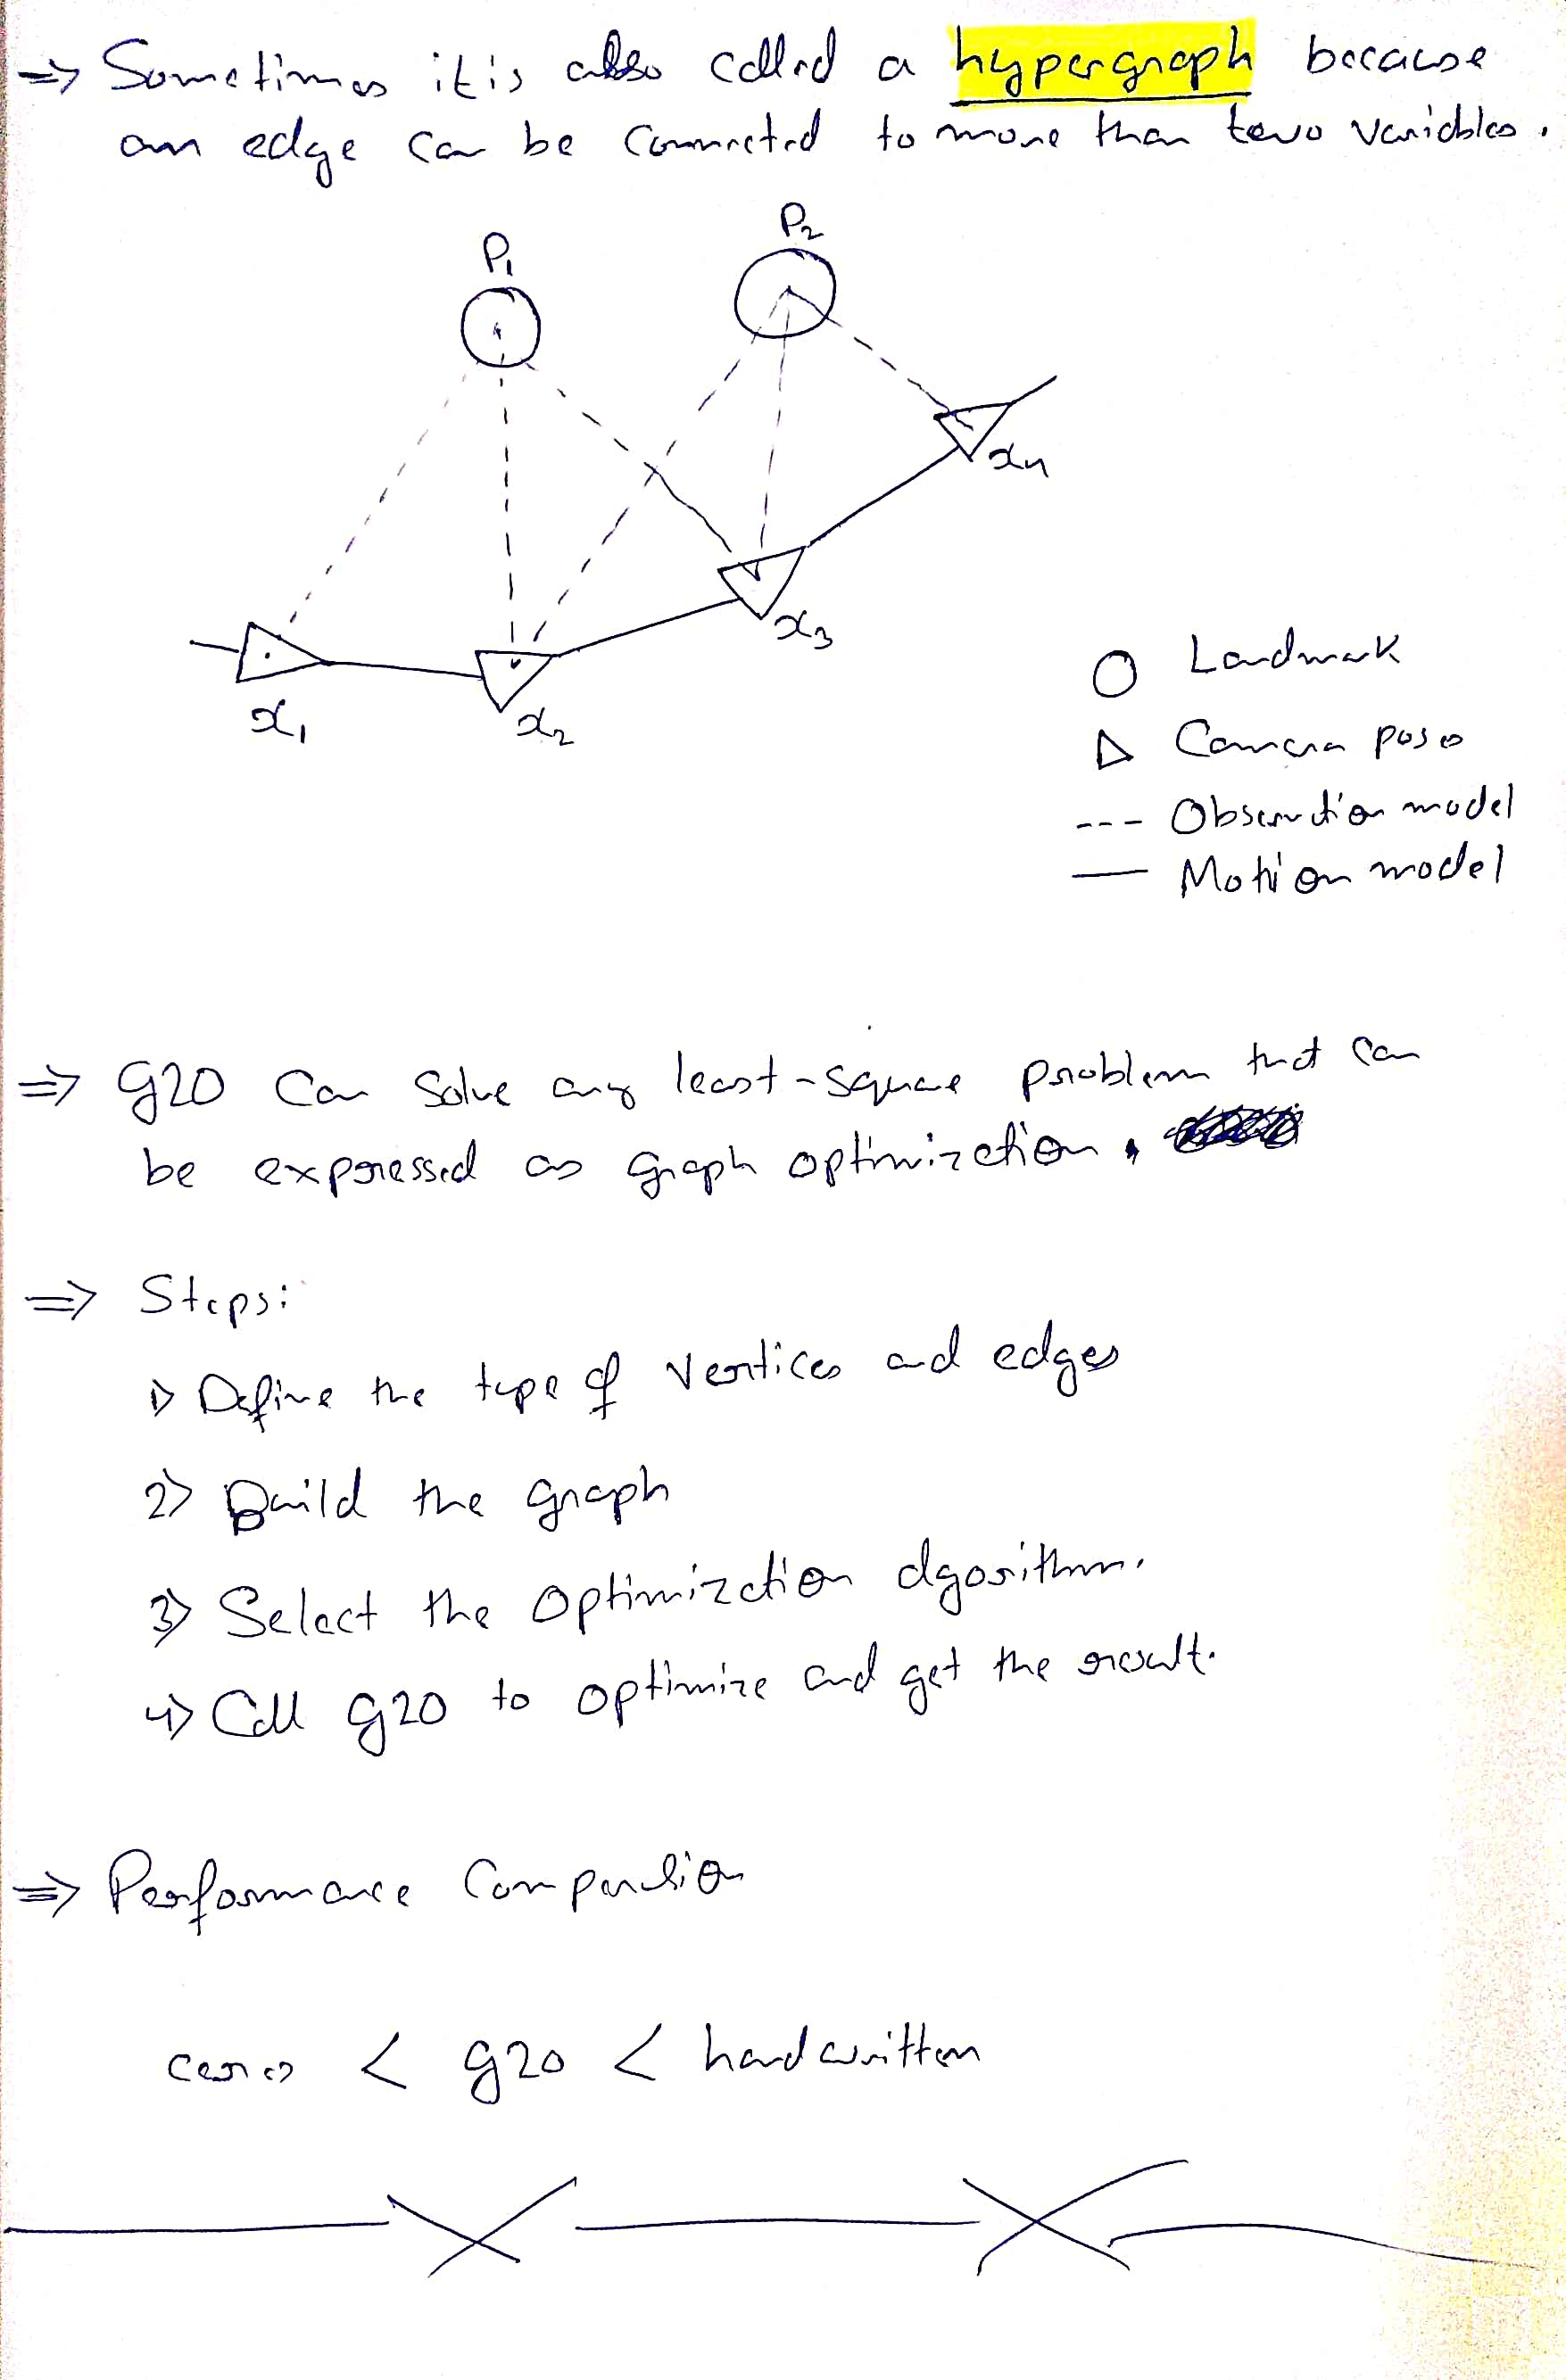 ⇒ Sometimes it is also called a hypergraph because
an edge can be connected to more than two variables.
P₁
P₂
x₁
x₂
x₃
x₄
Landmark
Camera poses
--- Observation model
— Motion model
⇒ g2o can solve any least-square problem that can
be expressed as graph optimization.
⇒ Steps:
1) Define the type of vertices and edges
2) Build the graph
3) Select the optimization algorithm.
4) Call g2o to optimize and get the result.
⇒ Performance Comparison
ceres < g2o < handwritten